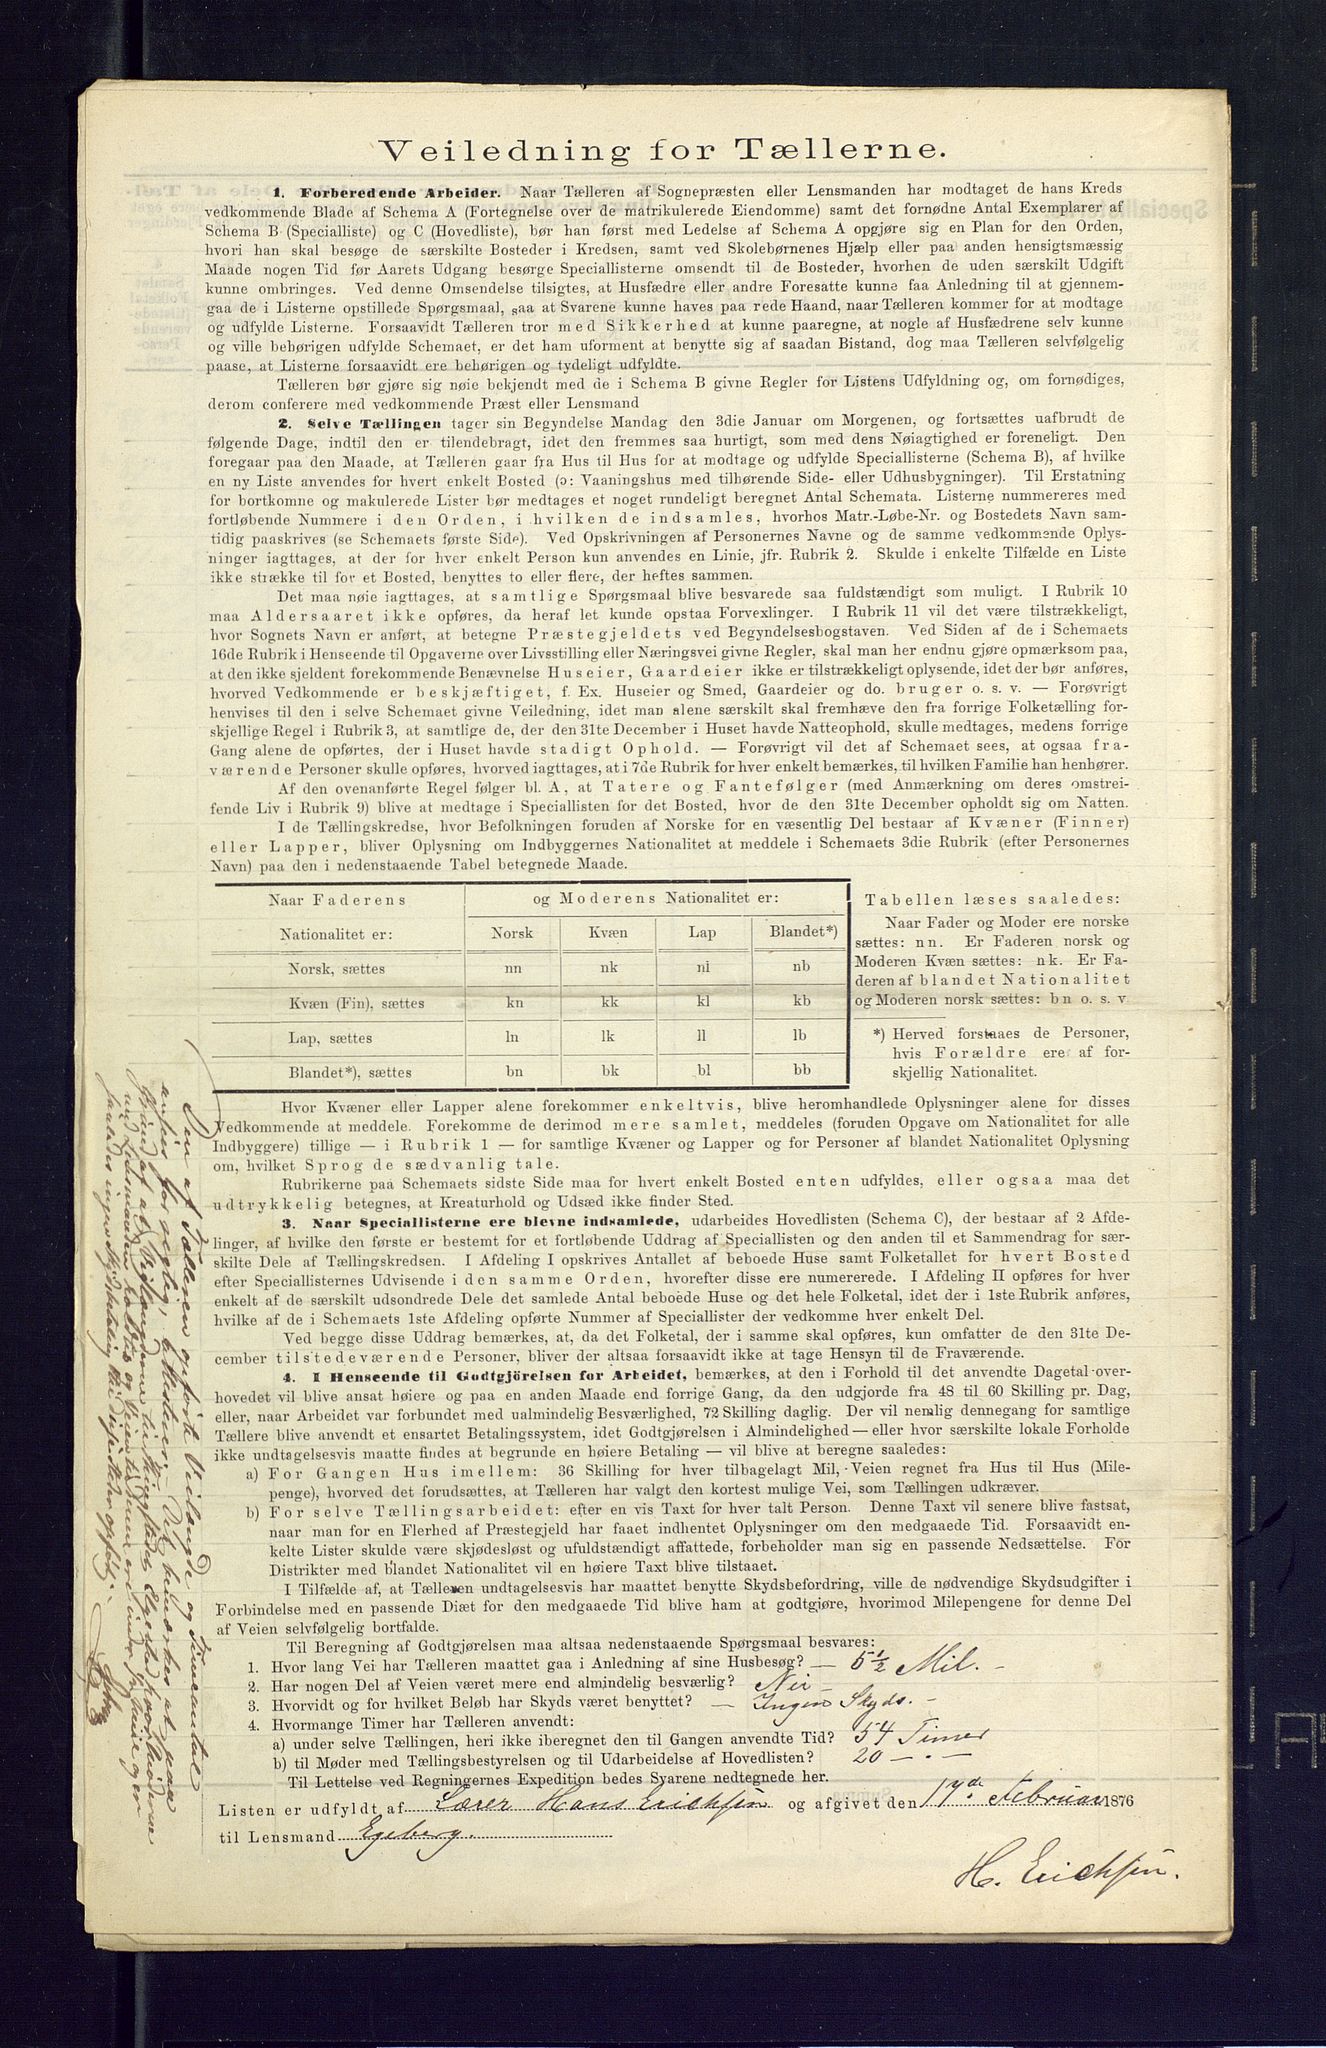 Veiledning for Tællerne.
1. Forberedende Arbeider. Naar Tælleren af Sognepræsten eller Lensmanden har modtaget de hans Kreds
vedkommende Blade af Schema A (Fortegnelse over de matrikulerede Eiendomme) samt det fornødne Antal Exemplarer af
Schema B (Specialliste) og C (Hovedliste), bør han først med Ledelse af Schema A opgjøre sig en Plan for den Orden,
hvori han skal besøge de særskilte Bosteder i Kredsen, samt ved Skolebørnenes Hjælp eller paa anden hensigtsmæssig
Maade nogen Tid før Aarets Udgang besørge Speciallisterne omsendt til de Bosteder, hvorhen de uden særskilt Udgift
kunne ombringes. Ved denne Omsendelse tilsigtes, at Husfædre eller andre Foresatte kunne faa Anledning til at gjennem-
gaa de i Listerne opstillede Spørgsmaal, saa at Svarene kunne haves paa rede Haand, naar Tælleren kommer for at modtage
og udfylde Listerne. Forsaavidt Tælleren tror med Sikkerhed at kunne paaregne, at nogle af Husfædrene selv kunne
og ville behørigen udfylde Schemaet, er det ham uforment at benytte sig af saadan Bistand, dog maa Tælleren selvfølgelig
paase, at Listerne forsaavidt ere behørigen og tydeligt udfyldte.
Tælleren bør gjøre sig nøie bekjendt med de i Schema B givne Regler for Listens Udfyldning og, om fornødiges,
derom conferere med vedkommende Præst eller Lensmand
2. Selve Tællingen tager sin Begyndelse Mandag den 3die Januar om Morgenen, og fortsættes uafbrudt de
følgende Dage, indtil den er tilendebragt, idet den fremmes saa hurtigt, som med dens Nøiagtighed er foreneligt. Den
foregaar paa den Maade, at Tælleren gaar fra Hus til Hus for at modtage og udfylde Speciallisterne (Schema B), af hvilke
en ny Liste anvendes for hvert enkelt Bosted (ɔ: Vaaningshus med tilhørende Side- eller Udhusbygninger). Til Erstatning
for bortkomne og makulerede Lister bør medtages et noget rundeligt beregnet Antal Schemata. Listerne nummereres med
fortløbende Nummere i den Orden, i hvilken de indsamles, hvorhos Matr.-Løbe-Nr. og Bostedets Navn sam-
tidig paaskrives (se Schemaets første Side). Ved Opskrivningen af Personernes Navne og de samme vedkommende Oplys-
ninger iagttages, at der for hver enkelt Person kun anvendes en Linie, jfr. Rubrik 2. Skulde i enkelte Tilfælde en Liste
ikke strække til for et Bosted, benyttes to eller flere, der heftes sammen.
Det maa nøie iagttages, at samtlige Spørgsmaal blive besvarede saa fuldstændigt som muligt. I Rubrik 10
maa Aldersaaret ikke opføres, da heraf let kunde opstaa Forvexlinger. I Rubrik 11 vil det være tilstrækkeligt,
hvor Sognets Navn er anført, at betegne Præstegjeldets ved Begyndelsesbogstaven. Ved Siden af de i Schemaets
16de Rubrik i Henseende til Opgaverne over Livsstilling eller Næringsvei givne Regler, skal man her endnu gjøre opmærksom paa,
at den ikke sjeldent forekommende Benævnelse Huseier, Gaardeier ikke er tilstrækkeligt oplysende, idet der bør anføres,
hvorved Vedkommende er beskjæftiget, f. Ex. Huseier og Smed, Gaardeier og do. bruger o. s. v. — Forøvrigt
henvises til den i selve Schemaet givne Veiledning, idet man alene særskilt skal fremhæve den fra forrige Folketælling for-
skjellige Regel i Rubrik 3, at samtlige de, der den 31te December i Huset havde Natteophold, skulle medtages, medens forrige
Gang alene de opførtes, der i Huset havde stadigt Ophold. — Forøvrigt vil det af Schemaet sees, at ogsaa fra-
værende Personer skulle opføres, hvorved iagttages, at i 7de Rubrik for hver enkelt bemærkes, til hvilken Familie han henhører.
Af den ovenanførte Regel følger bl. A, at Tatere og Fantefølger (med Anmærkning om deres omstrei-
fende Liv i Rubrik 9) blive at medtage i Speciallisten for det Bosted, hvor de den 31te December opholdt sig om Natten.
I de Tællingskredse, hvor Befolkningen foruden af Norske for en væsentlig Del bestaar af Kvæner (Finner)
eller Lapper, bliver Oplysning om Indbyggernes Nationalitet at meddele i Schemaets 3die Rubrik (efter Personernes
Navn) paa den i nedenstaaende Tabel betegnede Maade.
Naar Faderens og Moderens Nationalitet er:
Nationalitet er: Norsk Kvæn Lap Blandet*)
Norsk, sættes nn nk nl nb
Kvæn (Fin), sættes kn kk kl kb
Lap, sættes ln lk ll lb
Blandet*), sættes bn bk bl bb
Tabellen læses saaledes:
Naar Fader og Moder ere norske
sættes: nn. Er Faderen norsk og
Moderen Kvæn sættes: nk. Er Fa-
deren af blandet Nationalitet
og Moderen norsk sættes: bn o. s. v
*) Herved forstaaes de Personer,
hvis Forældre ere af for-
skjellig Nationalitet.
Hvor Kvæner eller Lapper alene forekommer enkeltvis, blive heromhandlede Oplysninger alene for disses
Vedkommende at meddele. Forekomme de derimod mere samlet, meddeles (foruden Opgave om Nationalitet for alle
Indbyggere) tillige — i Rubrik 1 — for samtlige Kvæner og Lapper og for Personer af blandet Nationalitet Oplysning
om, hvilket Sprog de sædvanlig tale.
Rubrikerne paa Schemaets sidste Side maa for hvert enkelt Bosted enten udfyldes, eller ogsaa maa det
udtrykkelig betegnes, at Kreaturhold og Udsæd ikke finder Sted.
3. Naar Speciallisterne ere blevne indsamlede, udarbeides Hovedlisten (Schema C), der bestaar af 2 Afde-
linger, af hvilke den første er bestemt for et fortløbende Uddrag af Speciallisten og den anden til et Sammendrag for sær-
skilte Dele af Tællingskredsen. I Afdeling I opskrives Antallet af beboede Huse samt Folketallet for hvert Bosted
efter Speciallisternes Udvisende i den samme Orden, hvorefter disse ere numererede. I Afdeling II opføres for hver
enkelt af de særskilt udsondrede Dele det samlede Antal beboede Huse og det hele Folketal, idet der i 1ste Rubrik anføres,
hvilke af de i Schemaets 1ste Afdeling opførte Nummer af Speciallister der vedkomme hver enkelt Del.
Ved begge disse Uddrag bemærkes, at, da det Folketal, der i samme skal opføres, kun omfatter de den 31te De-
cember tilstedeværende Personer, bliver der altsaa forsaavidt ikke at tage Hensyn til de Fraværende.
4. I Henseende til Godtgjörelsen for Arbeidet, bemærkes, at i Forhold til det anvendte Dagetal over-
hovedet vil blive ansat høiere og paa en anden Maade end forrige Gang, da den udgjorde fra 48 til 60 Skilling pr. Dag,
eller, naar Arbeidet var forbundet med ualmindelig Besværlighed, 72 Skilling daglig. Der vil nemlig dennegang for samtlige
Tællere blive anvendt et ensartet Betalingssystem, idet Godtgjørelsen i Almindelighed — eller hvor særskilte lokale Forholde
ikke undtagelsesvis maatte findes at begrunde en høiere Betaling — vil blive at beregne saaledes:
a) For Gangen Hus imellem: 36 Skilling for hver tilbagelagt Mil, Veien regnet fra Hus til Hus (Mile-
penge), hvorved det forudsættes, at Tælleren har valgt den kortest mulige Vei, som Tællingen udkræver.
b) For selve Tællingsarbeidet: efter en vis Taxt for hver talt Person. Denne Taxt vil senere blive fastsat,
naar man for en Flerhed af Præstegjeld har faaet indhentet Oplysninger om den medgaaede Tid. Forsaavidt en-
kelte Lister skulde være skjødesløst og ufuldstændigt affattede, forbeholder man sig en passende Nedsættelse. For
Distrikter med blandet Nationalitet vil en høiere Taxt blive tilstaaet.
I Tilfælde af, at Tælleren undtagelsesvis har maattet benytte Skydsbefordring, ville de nødvendige Skydsudgifter i
Forbindelse med en passende Diæt for den medgaaede Tid blive ham at godtgjøre, hvorimod Milepengene for denne Del
af Veien selvfølgelig bortfalde.
Til Beregning af Godtgjørelsen maa altsaa nedenstaaende Spørgsmaal besvares:
1. Hvor lang Vei har Tælleren maattet gaa i Anledning af sine Husbesøg? — 5 1/2 Mil. —
2. Har nogen Del af Veien været mere end almindelig besværlig? Nei —
3. Hvorvidt og for hvilket Beløb har Skyds været benyttet? — Ingen Skyds. —
4. Hvormange Timer har Tælleren anvendt:
a) under selve Tællingen, heri ikke iberegnet den til Gangen anvendte Tid? 54 Timer
b) til Møder med Tællingsbestyrelsen og til Udarbeidelse af Hovedlisten? 20 — " —
Til Lettelse ved Regningernes Expedition bedes Svarene nedtegnede her.
Listen er udfyldt af Lærer Hans Erichsen og afgivet den 17de Februar 1876
til Lensmand Egeberg.
H. Erichsen.
Den af Tælleren opførte Veilængde og Timeantal